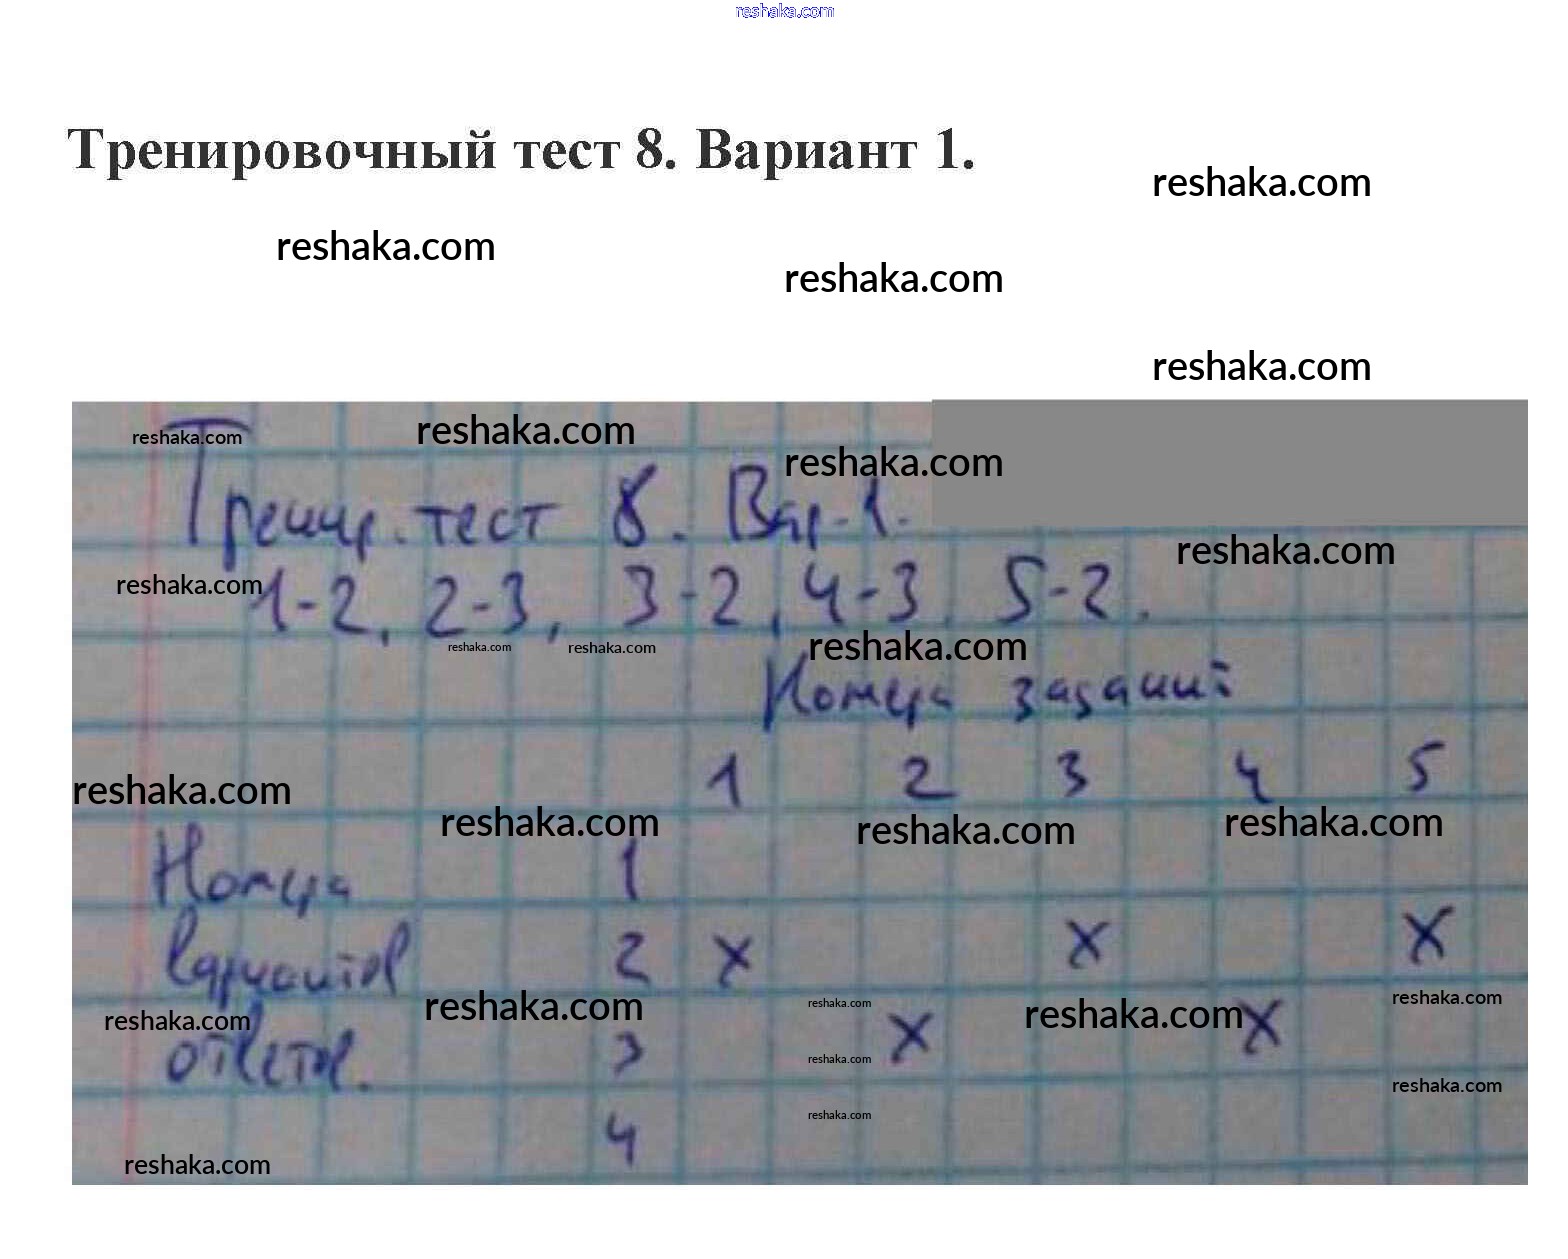 reshaka.com
Тренировочный тест 8. Вариант 1.
reshaka.com
reshaka.com
reshaka.com
reshaka.com
reshaka.com reshaka.com reshaka.com
Тренир. тест 8. Вар. 1.
reshaka.com
reshaka.com
1-2, 2-3, 3-2, 4-3, 5-2.
reshaka.com reshaka.com reshaka.com
Номера заданий
1 2 3 4 5
reshaka.com reshaka.com reshaka.com reshaka.com
Номера 1
вариантов 2 x x x
reshaka.com reshaka.com reshaka.com reshaka.com reshaka.com
ответов. 3 x x
reshaka.com
reshaka.com
reshaka.com
4
reshaka.com